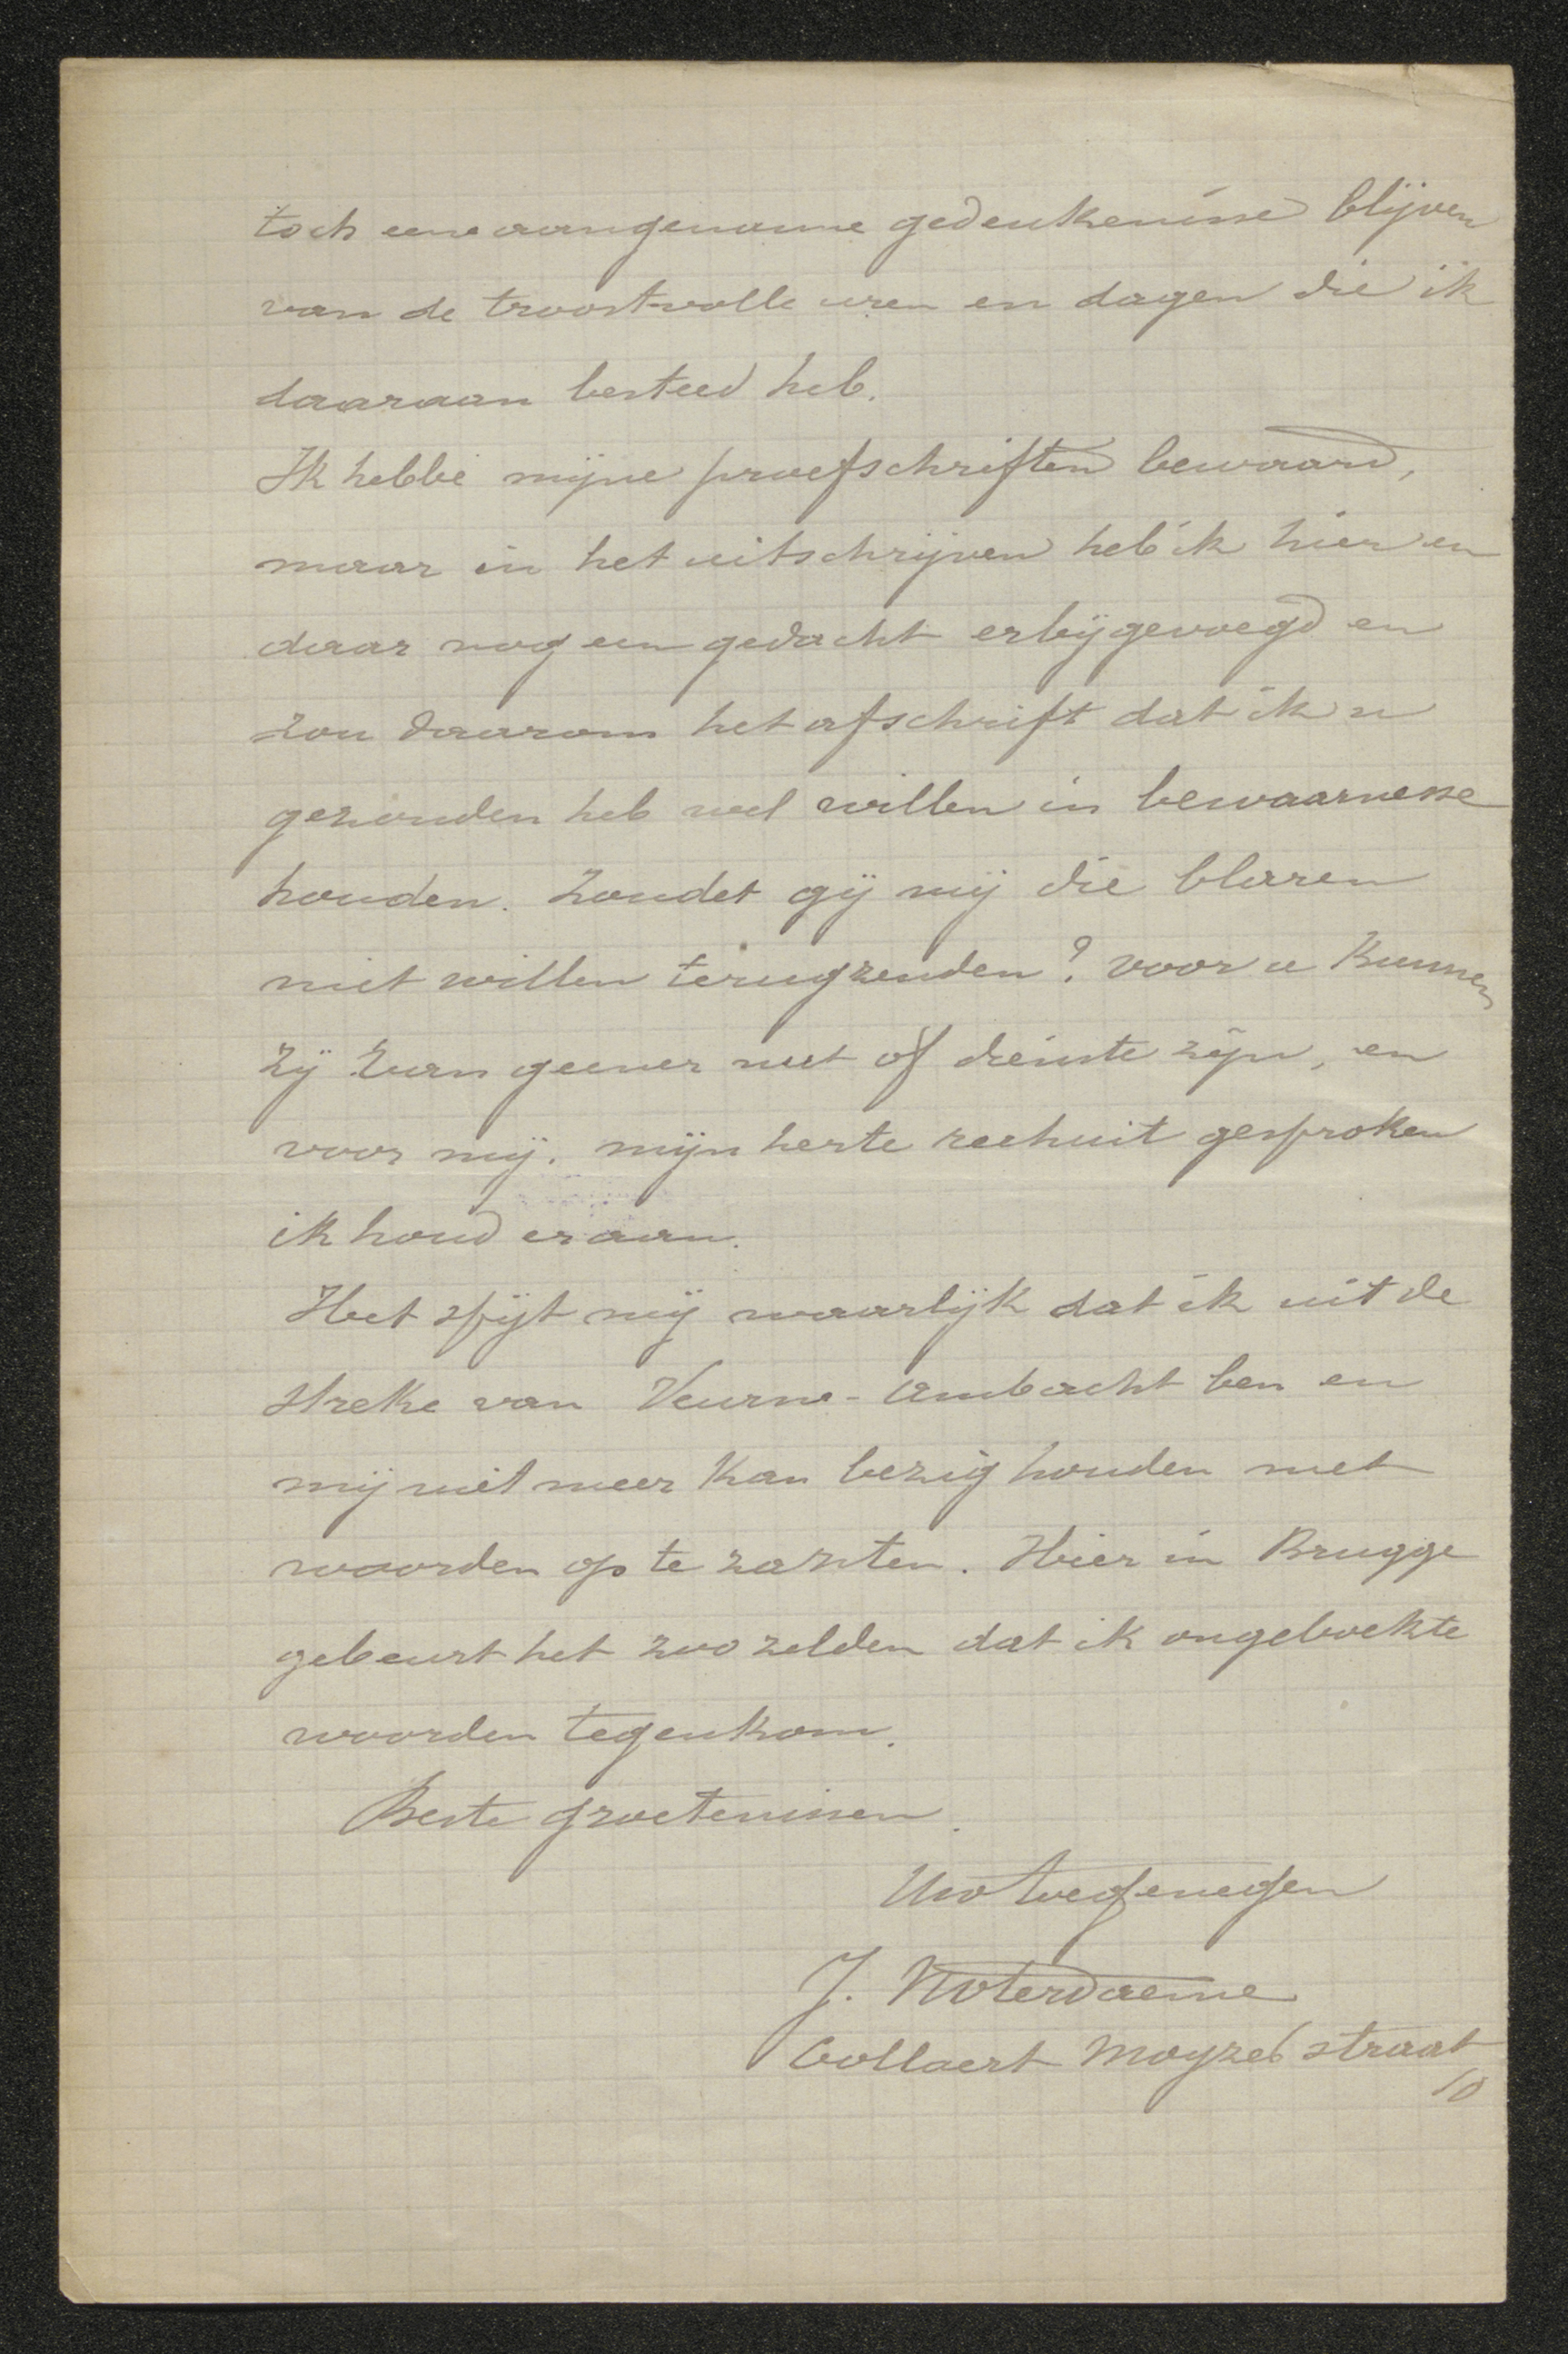 toch eene aangename gedenkenisse blijven
van de troostvolle uren en dagen die ik
daaraan besteed heb.
Ik hebbe mijne proefschriften bewaard,
maar in het uitschrijven heb ik hier en
daar nog een gedacht erbijgevoegd en
zou daarom het afschrift dat ik u
gezonden heb wel willen in bewaarnesse
houden. Zoudet gij mij die blaren
niet willen terugzenden? voor u kunnen
zij van geener nut of dienste zijn, en
voor mij. mijn herte rechuit gesproken
ik houd eraan.
Het spijt mij waarlijk dat ik uit de
streke van Veurne-Ambacht ben en
mij niet meer kan bezig houden met
woorden op te zanten. Hier in Brugge
gebeurt het zoo zelden dat ik ongeboekte
woorden tegenkom.
Beste groetenissen.
Uw toegenegen
J. Noterdaeme
Collaert Moyzes straat
10